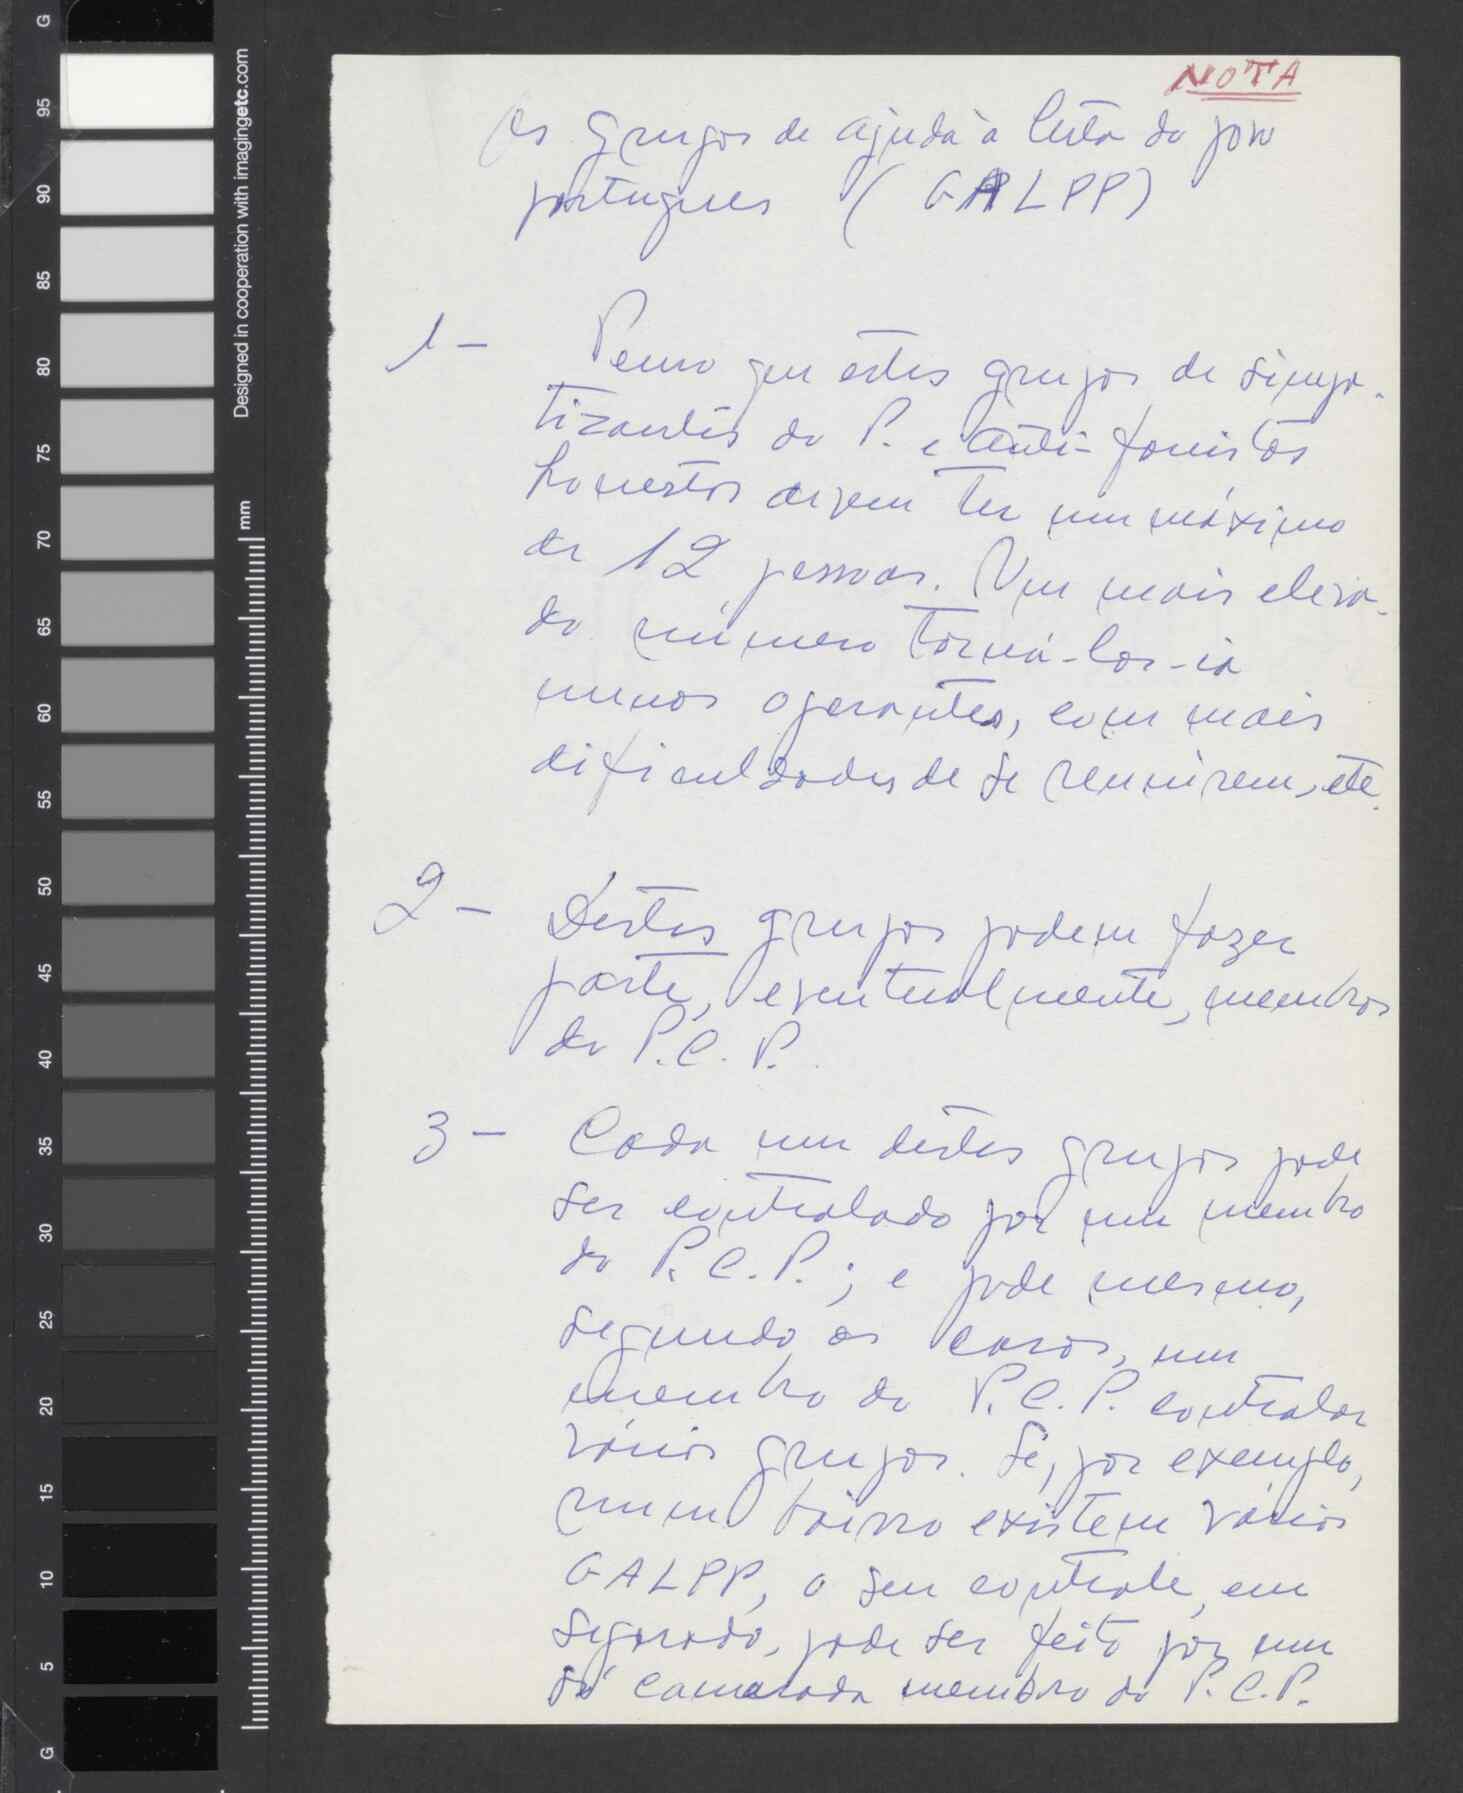 NOTA
Os grupos de ajuda à luta do povo
portugues (GALPP)
1 - Penso que estes grupos de simpa-
tizantes do P. e anti-fascistas
honestos devem ter um máximo
de 12 pessoas. Um mais eleva-
do número torná-los-ia
menos operantes, com mais
dificuldades de se reunirem, etc.
2 - Destes grupos podem fazer
parte, eventualmente, membros
do P.C.P.
3 - Cada um destes grupos pode
ser controlado por um membro
do P.C.P.; e pode mesmo,
segundo os casos, um
membro do P.C.P. controlar
vários grupos. Se, por exemplo,
num bairro existem vários
GALPP, o seu controle, em
separado, pode ser feito por um
só camarada membro do P.C.P.
G
95
90
85
80
75
70
65
60
55
50
45
40
35
30
25
20
15
10
5
G
Designed in cooperation with imagingetc.com
mm